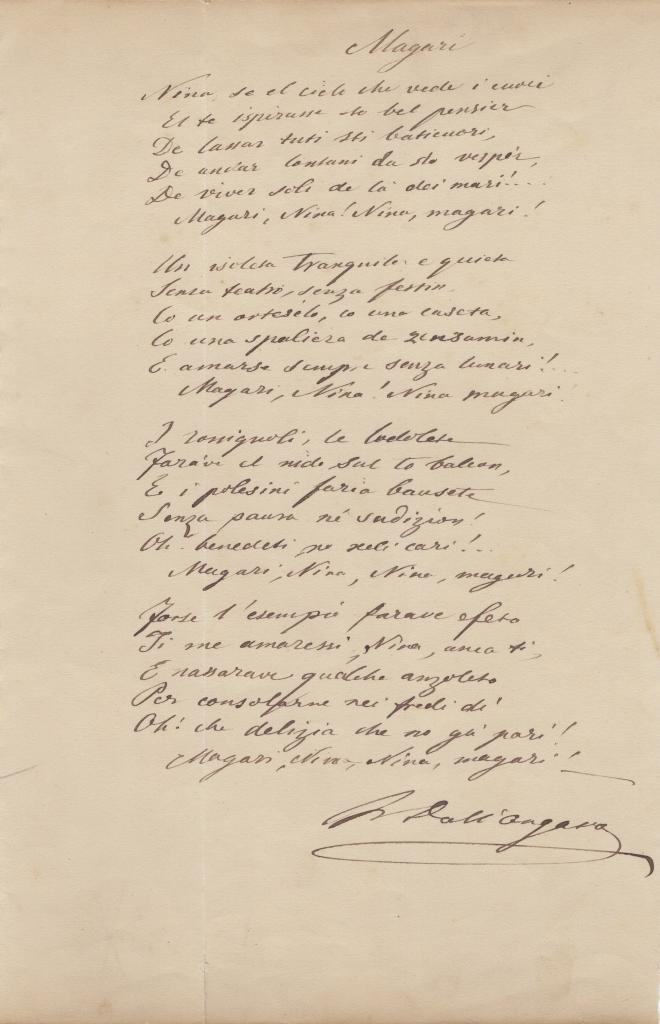 Magari
Nina, se el cielo che vede i cuori
El te ispirasse sto bel pensier
De lassar tuti sti baticuori,
De andar lontani da sto vespér,
De viver soli de là dei mari!....
Magari, Nina! Nina, magari!
Un isoleta tranquila e quieta
Senza teatro, senza festin
Co un orteselo, co una caseta,
Co una spaliera de zensamin,
E amarse sempre senza lunari!...
Magari, Nina! Nina magari!
I rossignoli, le lodolete
Farave el nido sul to balcon,
E i polesini faria bausete
Senza paura né sudizion!
Oh! benedeti, no xeli cari!..
Magari, Nina, Nina, magari!
Forse l'esempio farave efeto
Ti me amaressi, Nina, anca ti,
E nassarave qualche anzoleto
Per consolarne nei fredi dì
Oh! che delizia che no gà pari!
Magari, Nina, Nina, magari!
F Dall'Ongaro